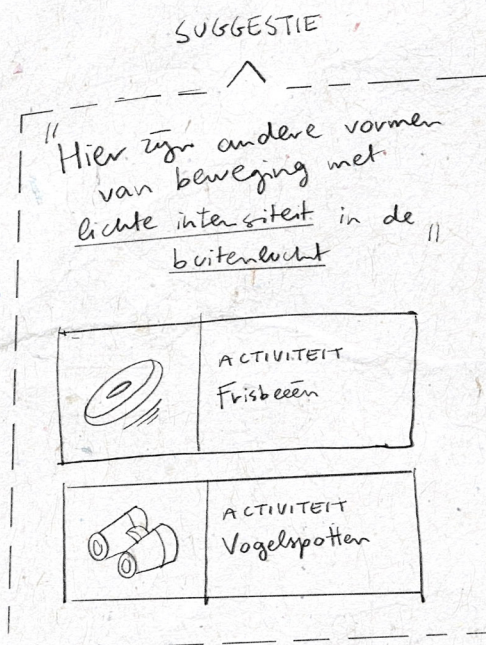 SUGGESTIE
"Hier zijn andere vormen
van beweging met
lichte intensiteit in de
buitenlucht"
ACTIVITEIT
Frisbeeën
ACTIVITEIT
Vogelspotten